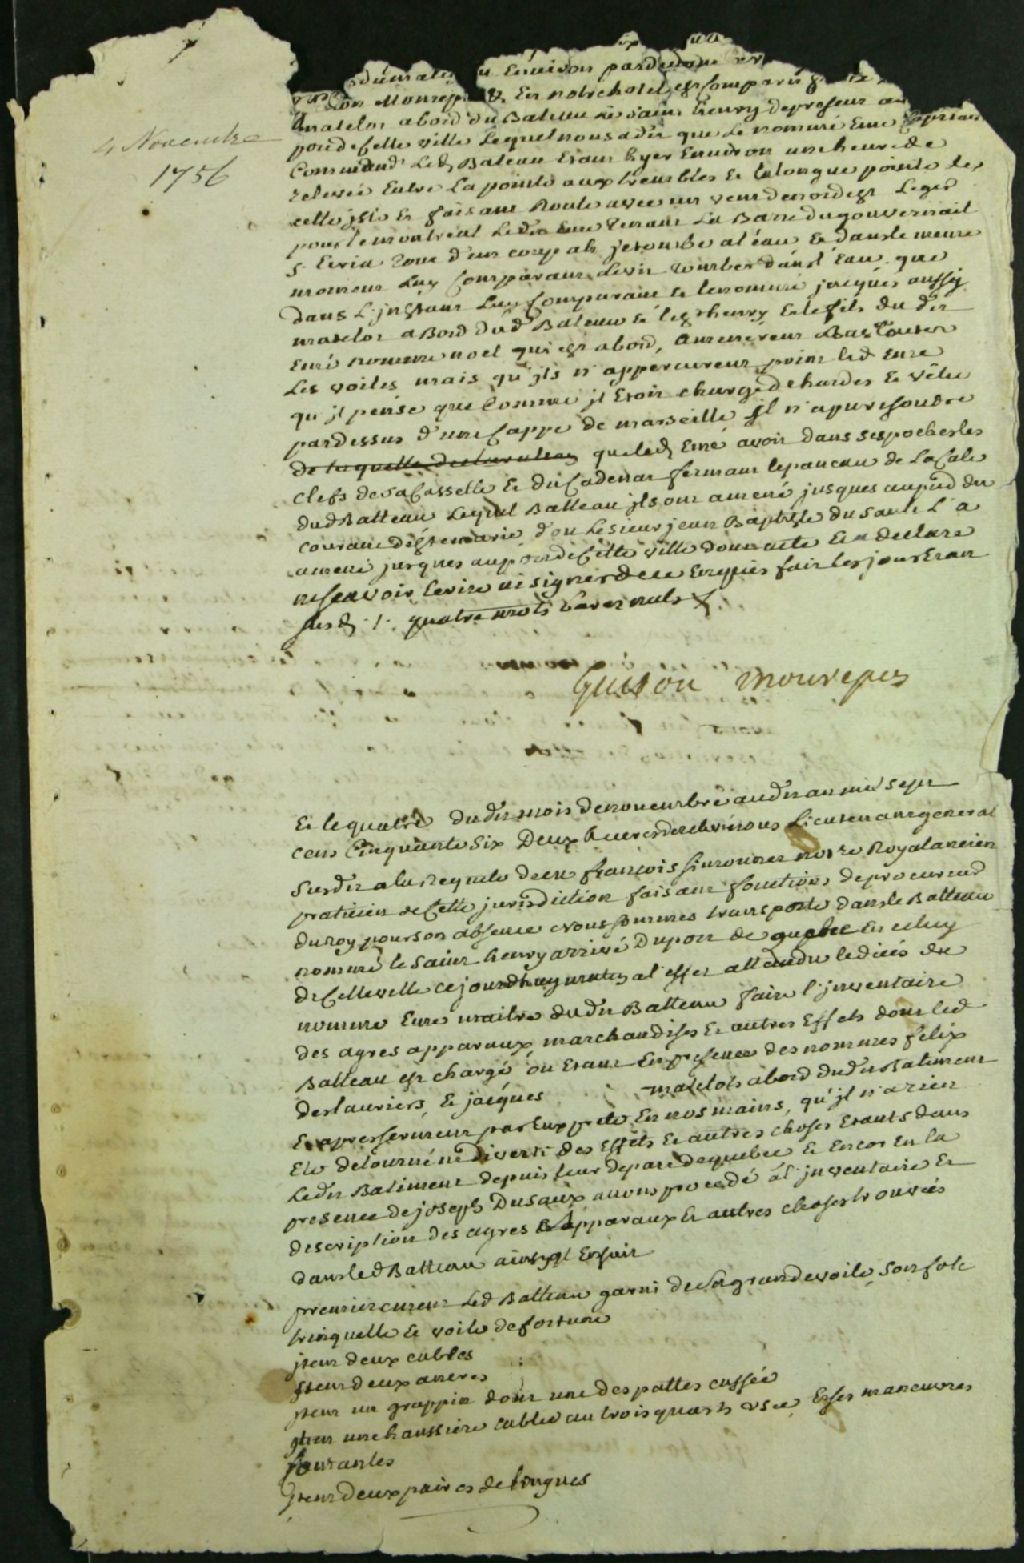 4 Novembre
1756
Environ pardevant
Monrepos En notre hotel Est Comparu
matelot abord du Bateau le saint henry de present au
port de Cette ville Lequel nous a dit que Le nommé Eme
Command.t Led Bateau Etant hyer Environ une heure de
relevée Entre La pointe aux trembles Et la longue pointe de
cette isle Et faisant Route avec un vent de nordest
pour le montreal Ledit Eme tenant La Barre du gouvernail
s'Ecria tout d'un coup ah je tombe a l'eau Et dans le meme
moment Luy Comparant Le vit tomber dans l'Eau que
dans L'instant Luy Comparant Et le nommé jacques aussy
matelot a Bord dud Bateau Et le fils du dit
Emé nommé noel qui est abord, amenerent
Les voiles mais qu'ils n'appercurent point led Eme
qu'il pense que Comme il Etoit chargé de hardes Et vétu
pardessus d'une Cappe de marseille Il n'a pu resoudre
de laquelle que led Emé avoit dans ses poches les
Clefs de sa Cassette Et du Cadenat fermant le panneau de La Cale
dud Batteau Lequel Batteau ils ont amené jusques au pied du
courant d'ou Le sieur jean Baptiste du sault L'a
amené jusques au port de Cette ville dont acte Et a declaré
ne sçavoir Ecrire ni signer de ce Enquis fait les jour Et an
susd. /. quatre mots Rayez nuls
Guiton Monrepos
Et le quatre dudit mois de novembre audit an mil sept
cens Cinquante Six Deux heures de relevé nous Lieutenant general
Susdit a la Requete de me françois Simonnet no.re Royal ancien
praticien de Cette jurisdiction faisant fonctions de procureur
du roy pour son absence nous sommes transporté dans le Batteau
nommé le Saint henry arrivé du port de quebec En celuy
de Cette ville ce jourdhuy matin a l'effet attendu le decés du
nommé Eme maitre dudit Batteau faire l'inventaire
des agres apparaux, marchandises Et autres Effets dont led
Batteau est chargé ou Etant En presence des nommes felix
deslauriers, Et jacques matelots abord dudit Batiment
Et apres serment par Eux preté En nos mains, qu'il n'a rien
Eté detourné ni diverti des Effets Et autres choses Etants dans
Ledit Batiment depuis leur depart de quebec Et Encor En la
presence de joseph Dusaux avons procedé a l'inventaire Et
description des agres Et Apparaux Et autres choses trouvées
dans led Batteau ainsy qil Ensuit
premierement Led Batteau garni de sa grande voile, Son foc
trinquette Et voile de fortune
jtem deux cables
jtem deux ancres
jtem un grappin dont une des pattes cassée
jtem une haussiere cablée au trois quarts usée, Et ses manoeuvres
Courantes
jtem deux paires de